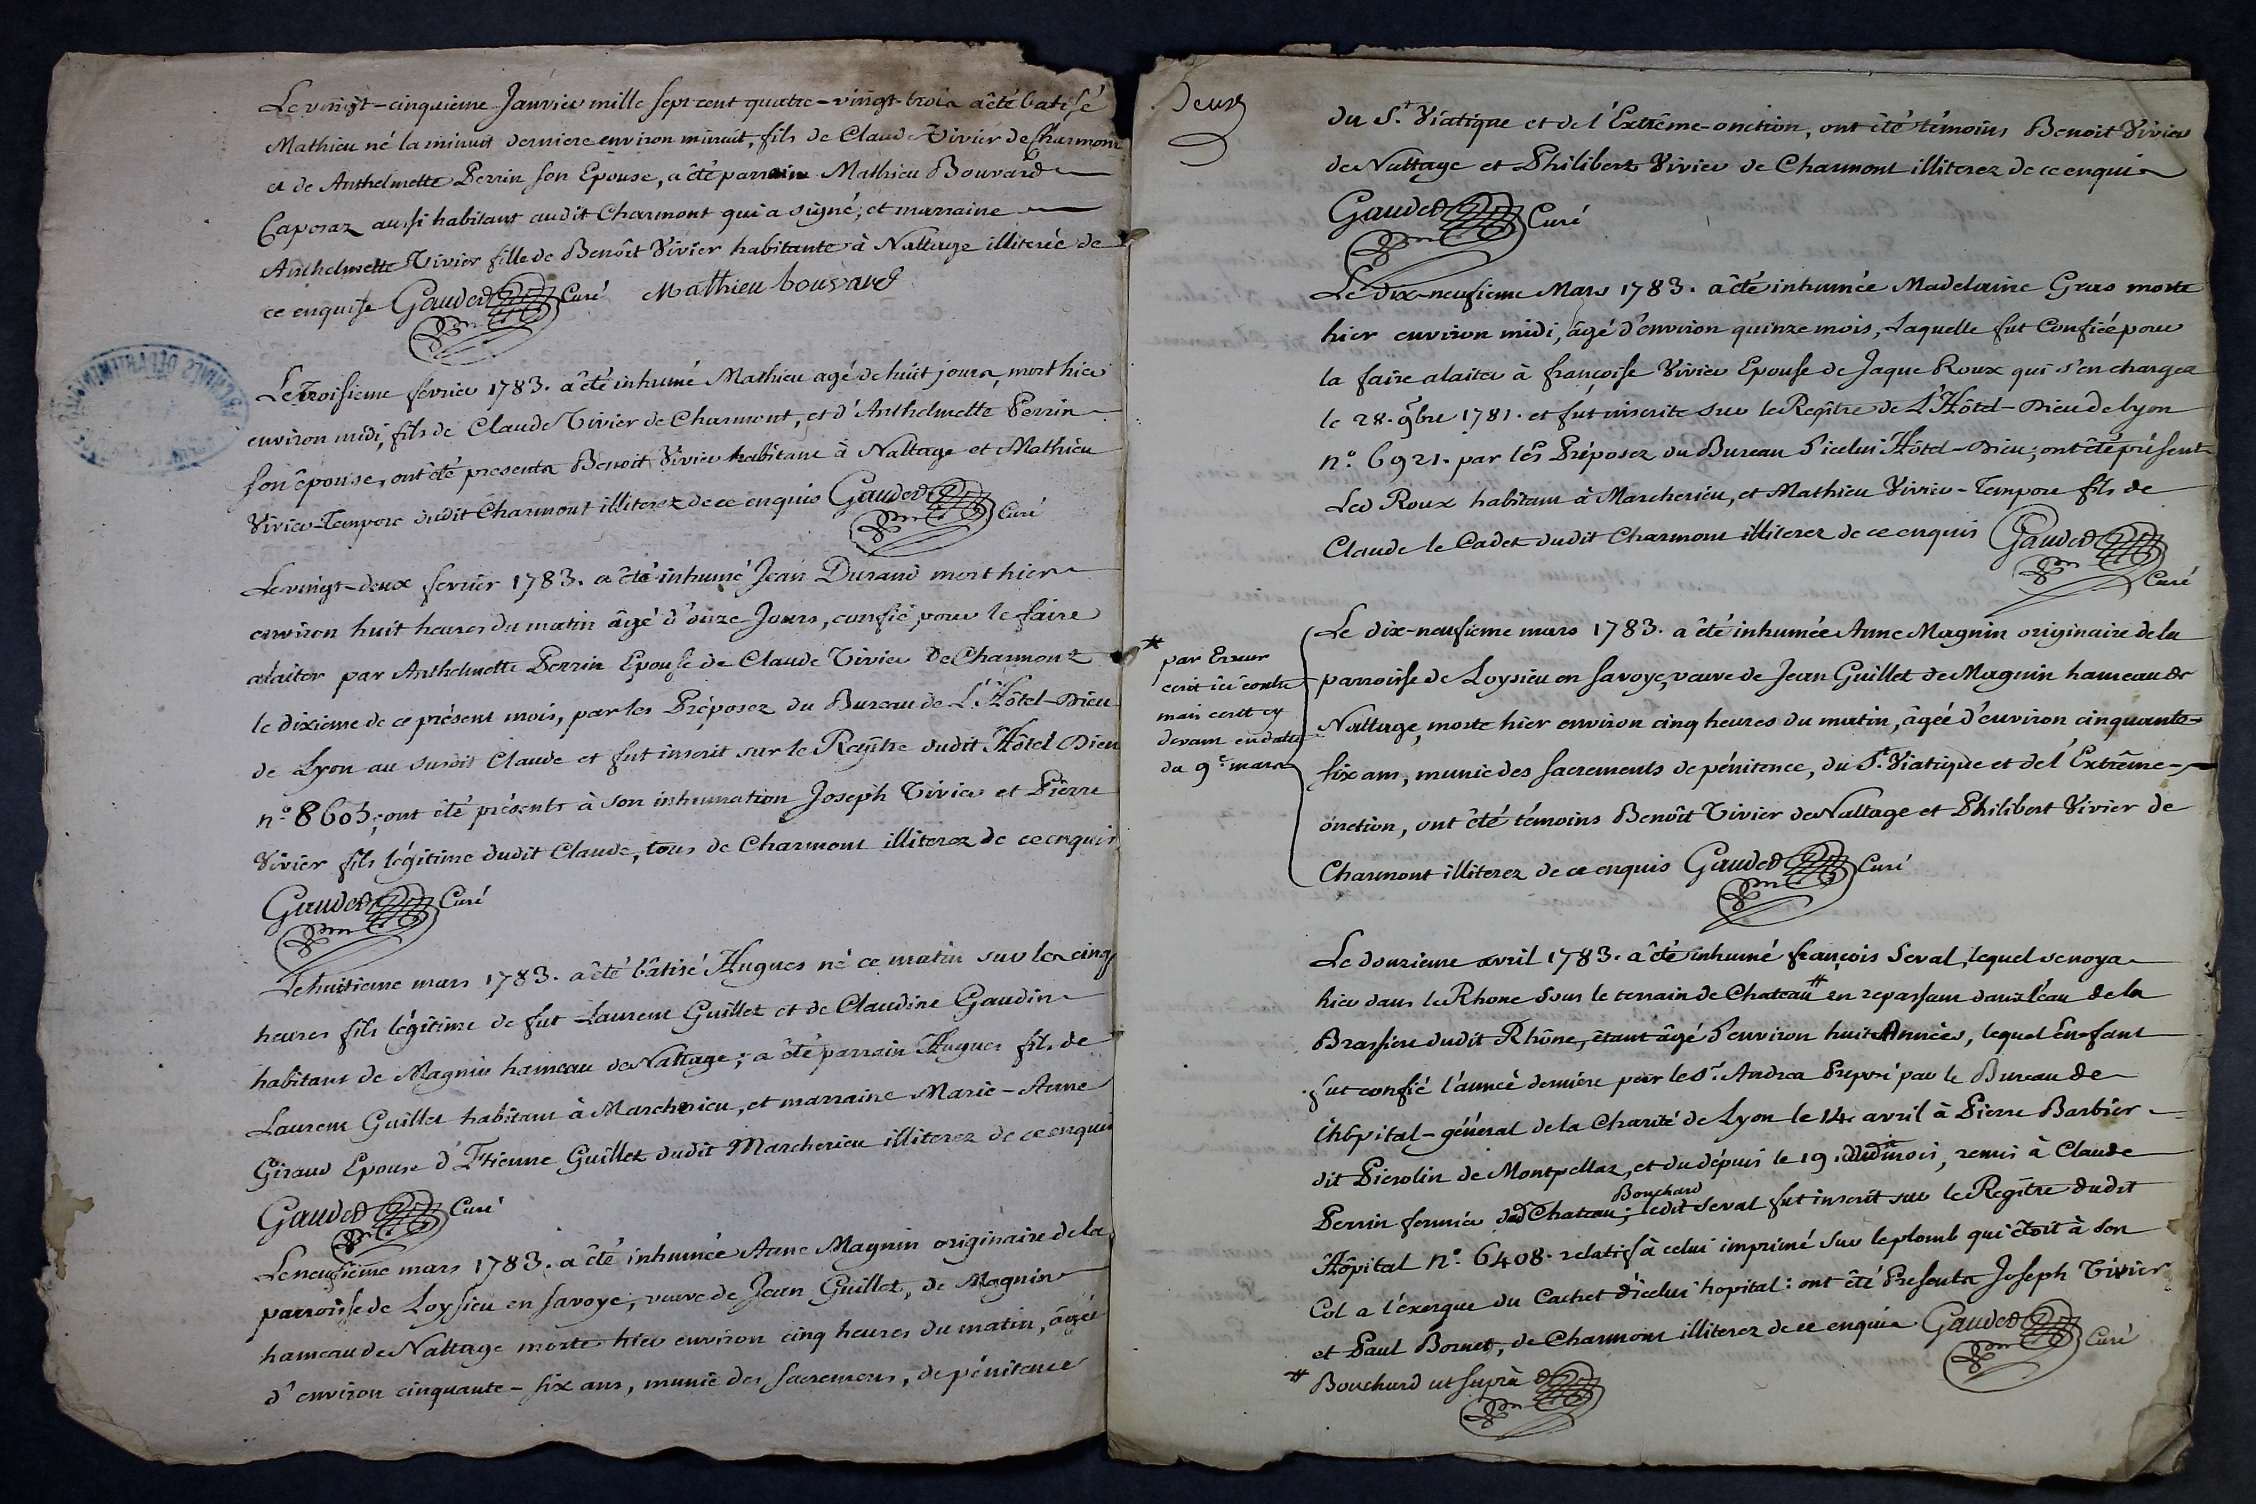 Le vingt-cinquieme Janvier mille sept cent quatre-vingt-trois a êté batisé
Mathieu né la minuit derniere environ minuit, fils de Claude Vivier de Charmont
et de Anthelmette Perrin son Epouse, a êté parrain Mathieu Bouvard
Caporaz aussi habitant audit Charmont qui a signé; et marraine
Anthelmette Vivier fille de Benoît Vivier habitante à Nattage illiterée de
ce enquise Gaudet Curé Mathieu bouvard
Le troisieme fevrier 1783. a êté inhumé Mathieu agé de huit jours, mort hier
environ midi, fils de Claude Vivier de Charmont, et d'Anthelmette Perrin
son épouse, ont êté presents Benoit Vivier habitant à Nattage et Mathieu
Vivier-Tempore dudit Charmont illiterez de ce enquis Gaudet Curé
Le vingt-deux fevrier 1783. a êté inhumé Jean Durand mort hier
environ huit heures du matin âgé d'onze Jours, confié pour le faire
alaiter par Anthelmette Perrin Epouse de Claude Vivier de Charmont
le dixieme de ce présent mois, par les Préposez du Bureau de L'Hôtel-Dieu
de Lyon au susdit Claude et fut inscrit sur le Regître dudit Hôtel Dieu
n.o 8603; ont êté présents à son inhumation Joseph Vivier et Pierre
Vivier fils légitime dudit Claude, tous de Charmont illiterez de ce enquis
Gaudet Curé
Le huitieme mars 1783. a êté bâtisé Hugues né ce matin sur les cinq
heures fils légitime de fut Laurent Guillet et de Claudine Gaudin
habitant de Magnin hameau de Nattage; a êté parrain Hugues fils de
Laurent Guillet habitant à Marcherieu, et marraine Marie-Anne
Giraud Epouse d'Etienne Guillet dudit Marcherieu illiterez de ce enquis
Gaudet Curé
Le neufieme mars 1783. a êté inhumée Anne Magnin originaire de la
parroisse de Loysieu en Savoye, veuve de Jean Guillet, de Magnin
hameau de Nattage morte hier environ cinq heures du matin, âgée
d'environ cinquante-six ans, munie des sacremens, de pénitence
Deux
du St. Viatique et de l'Extrême-onction, ont êté témoins Benoit Vivier
de Nattage et Philibert Vivier de Charmont illiterez de ce enquis
Gaudet Curé
Le Dix-neufieme Mars 1783. a êté inhumée Madelaine Gras morte
hier environ midi, âgé d'environ quinze mois, Laquelle fut Confiée pour
la faire alaiter à françoise Vivier Epouse de Jaque Roux qui s'en chargea
le 28. 9bre 1781. et fut inscrite sur le Regître de L'Hôtel-Dieu de lyon
n.o 6921. par les Préposez du Bureau d'icelui Hôtel-Dieu; ont êté présent
Led Roux habitant à Marcherieu, et Mathieu Vivier-Tempore fils de
Claude le Cadet dudit Charmont illiterez de ce enquis Gaudet
Curé
* par Erreur
ecrit ici contre
mais ecrit cy
devant en datte
du 9e mars
Le dix-neufieme mars 1783. a êté inhumée Anne Magnin originaire de la
parroisse de Loysieu en Savoye, veuve de Jean Guillet de Magnin hameau de
Nattage, morte hier environ cinq heures du matin, âgée d'environ cinquante-
six ans, munie des sacrements de pénitence, du St. Viatique et de l'Extrême-
onction, ont êté témoins Benoît Vivier de Nattage et Philibert Vivier de
Charmont illiterez de ce enquis Gaudet Curé
Le douzieme avril 1783. a êté inhumé françois Seval, lequel se noya
hier dans le Rhone sous le terrain de Chateau # en repassant dans l'eau de la
Brassiere dudit Rhône, êtant âgé d'environ huit Années, lequel Enfant
fut confié l'année derniere par le Sr. Andrea Preposé par le Bureau de
l'hôpital-général de la Charité de Lyon le 14 avril à Pierre Barbier
dit Pierolin de Montpellaz, et du dépuis le 19. dudit mois, remis à Claude
Perrin fermier dud Chateau Bouchard; ledit Seval fut inscrit sur le Regître dudit
Hôpital n.o 6408. relatif à celui imprimé sur le plomb qui êtoit à son
Col a l'exergue du Cachet d'icelui hopital: ont êté Presents Joseph Vivier
et Paul Bornet, de Charmont illiterez de ce enquis Gaudet Curé
# Bouchard ut suprà